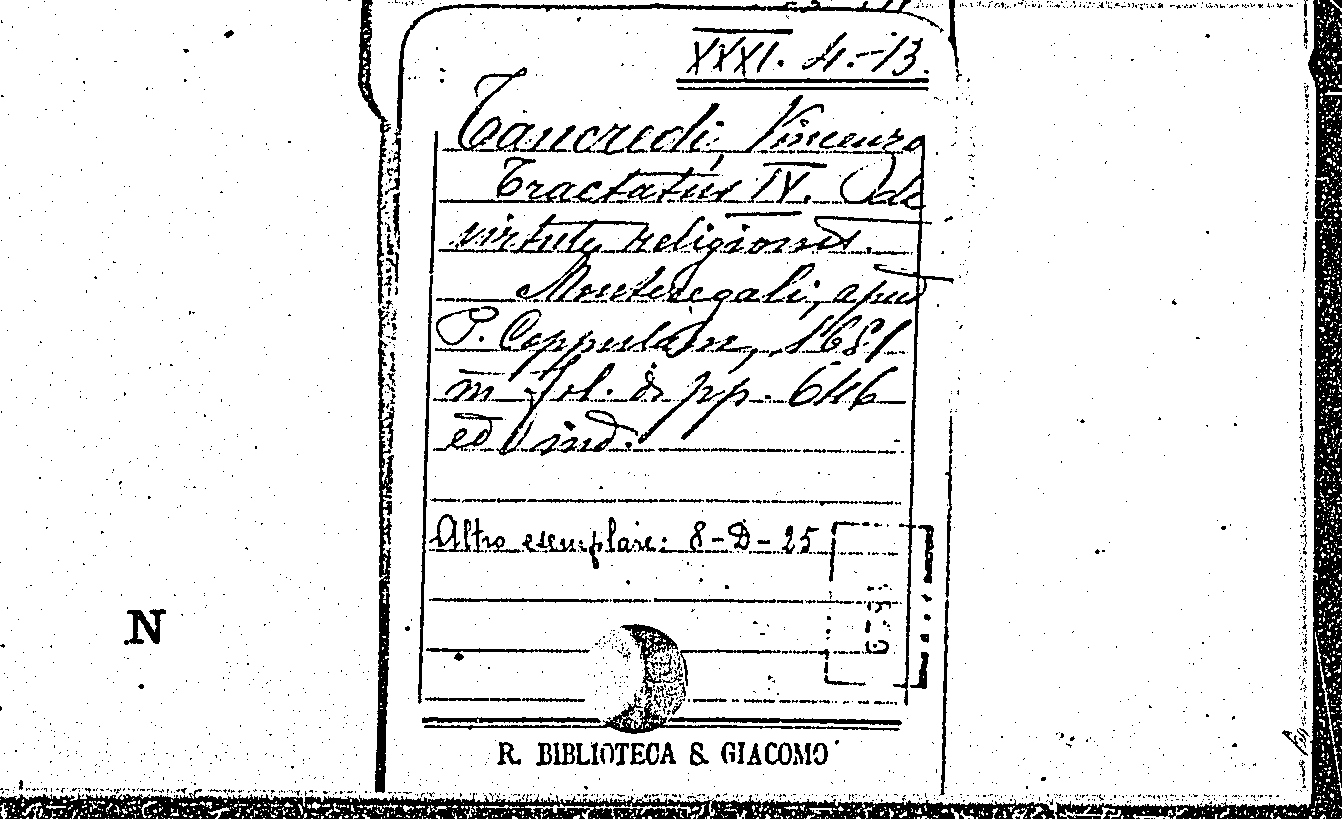 XXXI. 4.-13.
Tancredi, Vincenzo
Tractatus IV. De
virtute religionis.
Monteregali, apud
P. Coppulam, 1681
in fol. di pp. 646
ed ind.
Altro esemplare: 8-D-25
N
R. BIBLIOTECA S. GIACOMO